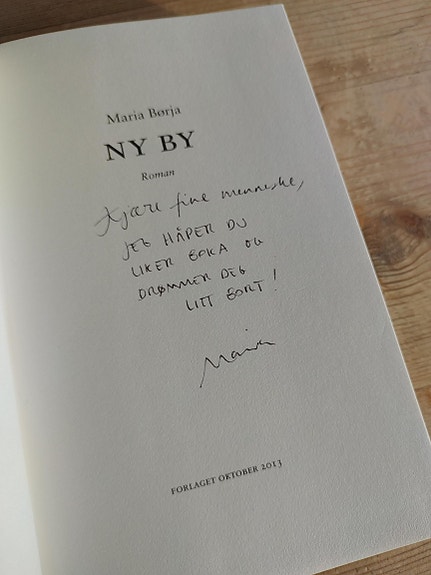 Maria Børja
NY BY
Roman
Kjære fine menneske,
JEG HÅPER DU
LIKER BOKA OG
DRØMMER DEG
LITT BORT!
Maria
FORLAGET OKTOBER 2013